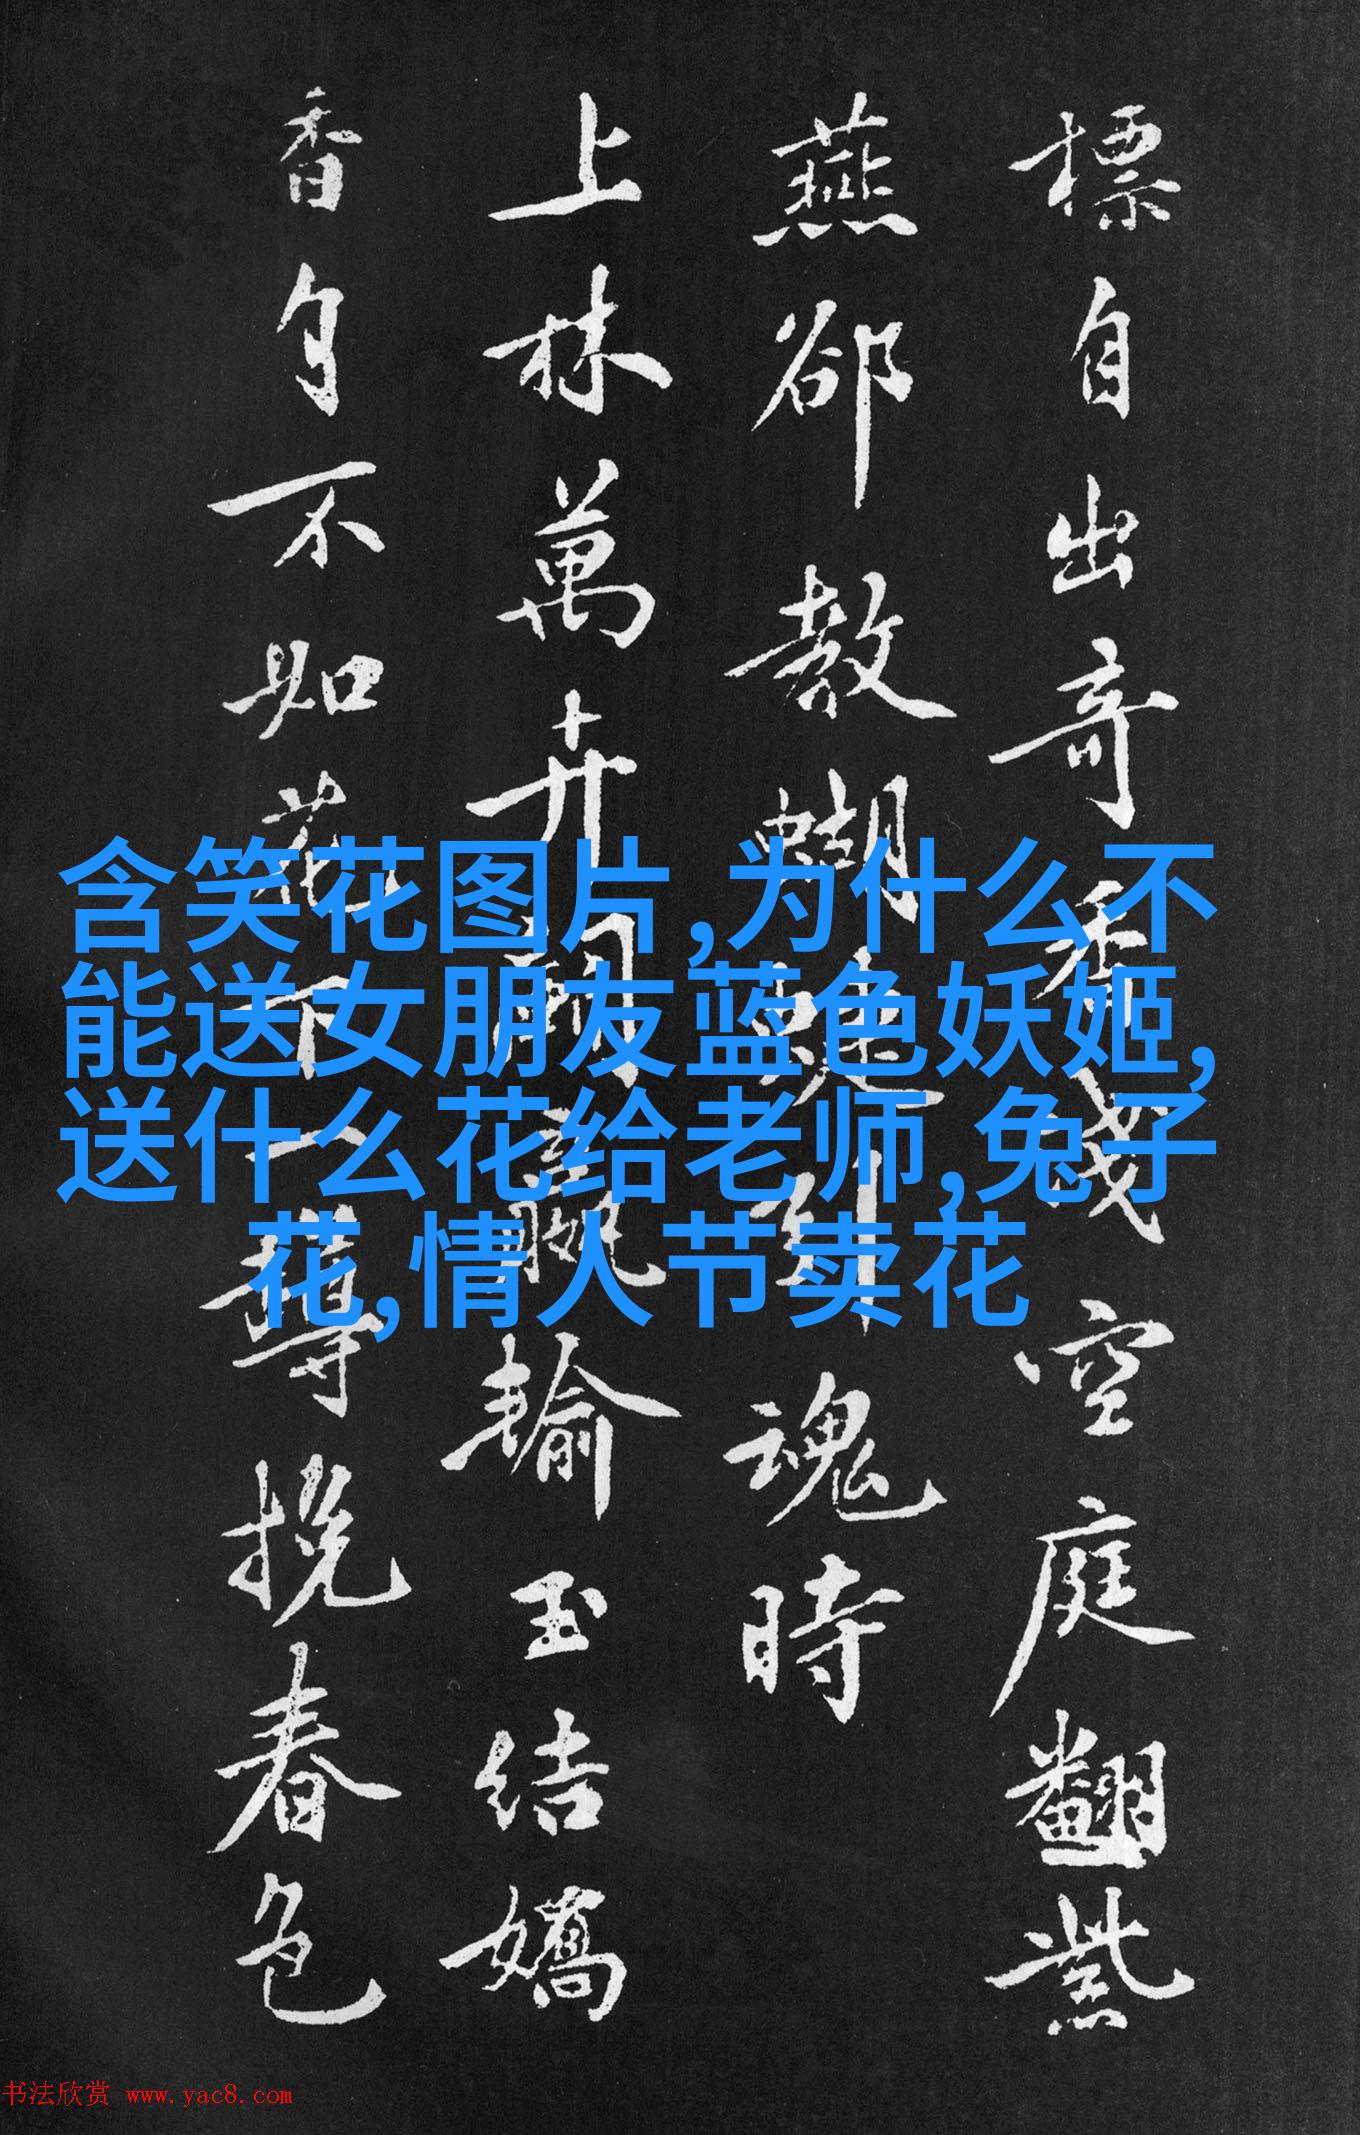 標自出奇香淺空庭翻紫
燕郤教蝴蝶到魂時
上林萬卉贏輸玉結嬌
香不如花下一尊挽春色
含笑花图片,为什么不
能送女朋友蓝色妖姬,
送什么花给老师,兔子
花,情人节卖花
书法欣赏 www.yac8.com